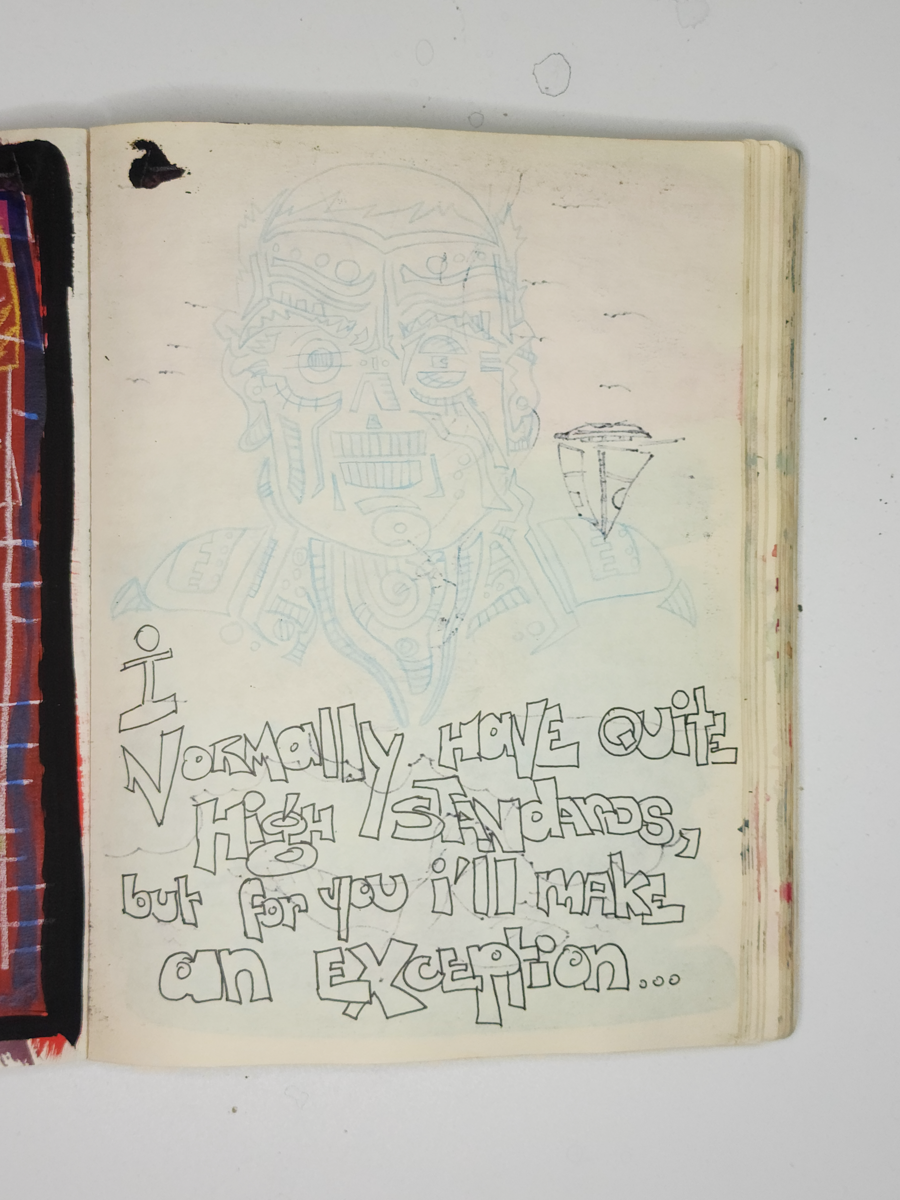 i
NORMAlly HAVE QuitE
HiGH STANdARDS,
but for you i'll MAKE
an EXCEPtion...